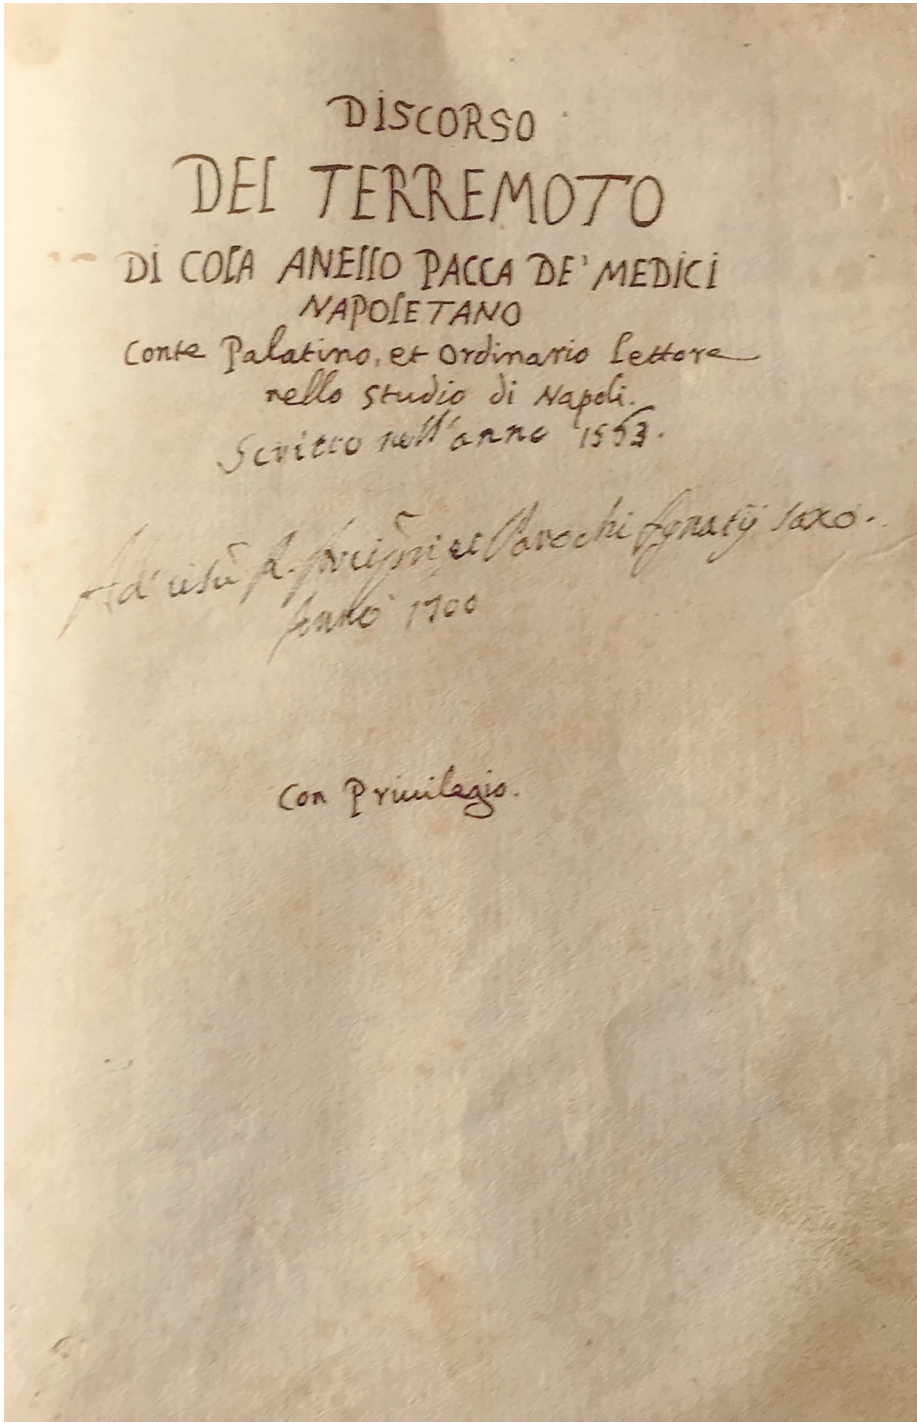 DISCORSO
DEL TERREMOTO
DI COLA ANELLO PACCA DE' MEDICI
NAPOLETANO
Conte Palatino, et Ordinario Lettore
nello Studio di Napoli.
Scritto nell'anno
Ad usũ et Parochi Ignatij Saxo.
Anno 1700
Con Priuilegio.